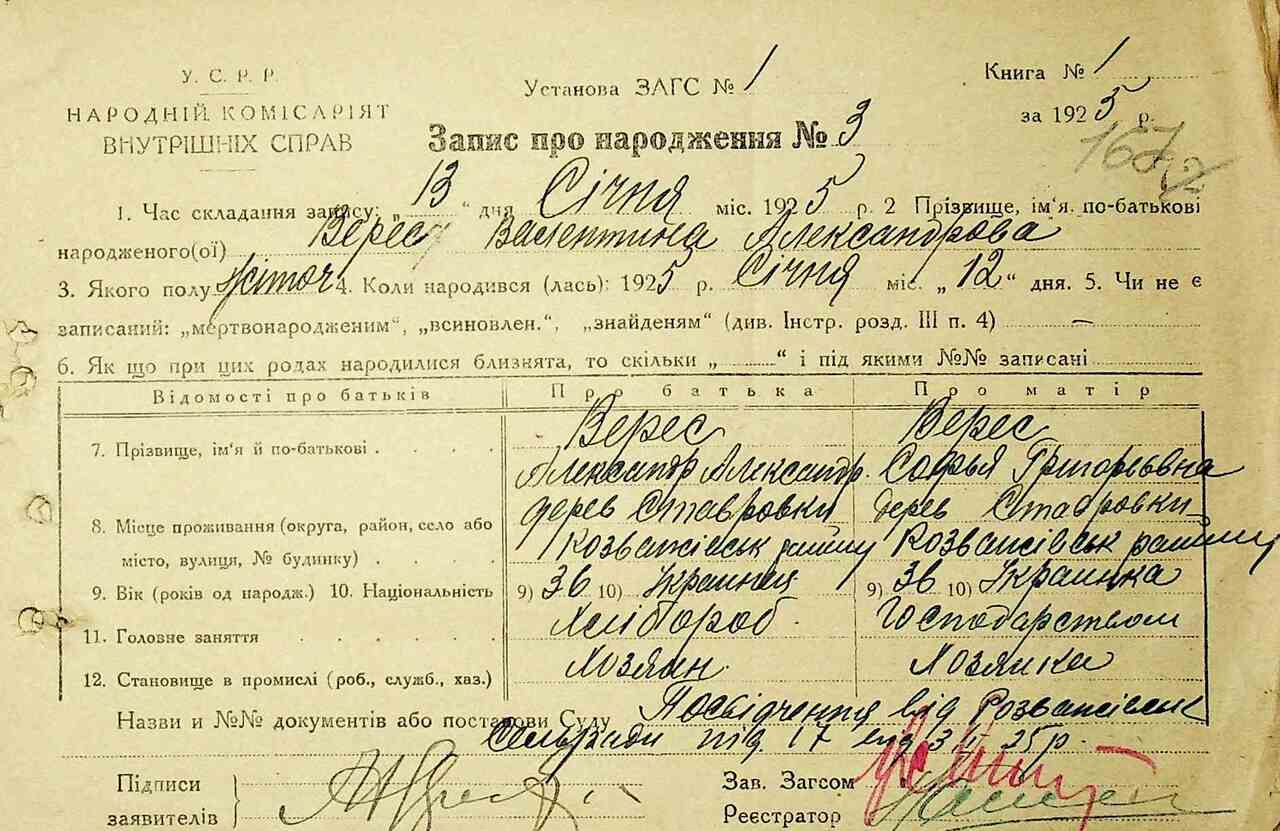 У. С. Р. Р.
НАРОДНІЙ КОМІСАРІЯТ
ВНУТРІШНІХ СПРАВ
Установа ЗАГС № 1
Книга № 1
за 1925 р.
Запис про народження № 3
167
1. Час складання запису: „13“ дня Січня міс. 1925 р. 2 Прізвище, ім'я. по-батькові
народженого(ої) Верес Валентина Александрова
3. Якого полу жіноч 4. Коли народився (лась): 1925 р. Січня міс. „12“ дня. 5. Чи не є
записаний: „мертвонародженим“, „всиновлен.“, „знайденям“ (див. Інстр. розд. III п. 4) —
6. Як що при цих родах народилися близнята, то скільки „ “ і під якими №№ записані
Відомості про батьків Про батька Про матір
Верес Верес
7. Прізвище, ім'я й по-батькові . . . .
Александр Александр. Софья Григорьевна
дерев Ставровки дерев Ставровки
8. Місце проживання (округа, район, село або
місто, вулиця, № будинку) . . . . Розважівськ район Розважівськ район
9. Вік (років од народж.) 10. Національність 9) 36 10) Украинец 9) 36 10) Украинка
11. Головне заняття . . . . . . Хлібороб Господарством
12. Становище в промислі (роб., служб., хаз.) Хозяин Хозяйка
Назви и №№ документів або постанови Суду Посвідчення від Розважівськ
Сельради від 25 р.
Підписи
заявителів
Зав. Загсом
Реєстратор